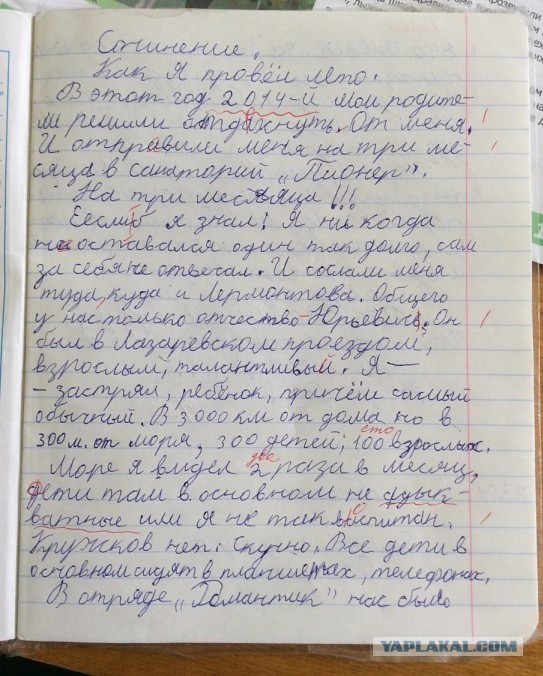 Сочинение.
Как я провёл лето.
В этот год 2014-й мои родите-
ли решили отдохнуть. От меня.
И отправили меня на три ме-
сяца в санаторий „Пионер".
На три месяца!!!
Если б я знал! Я ни когда
не оставался один так долго, сам
за себя не отвечал. И сослали меня
туда, куда и Лермонтова. Общего
у нас только отчество - Юрьевич. Он
был в Лазаревском проездом,
взрослый, талантливый. Я —
- застрял, ребёнок, причём самый
обычный. В 3000 км от дома но в
сто
300 м. от моря, 300 детей; 100 взрослых.
два
Море я видел 2 рази в месяц,
Дети там в основном не адык-
ватные или я не так воспитан.
Кружков нет. Скучно. Все дети в
основном сидят в планшетах, телефонах.
В отряде „Романтик" нас было
YAPLAKAL.COM